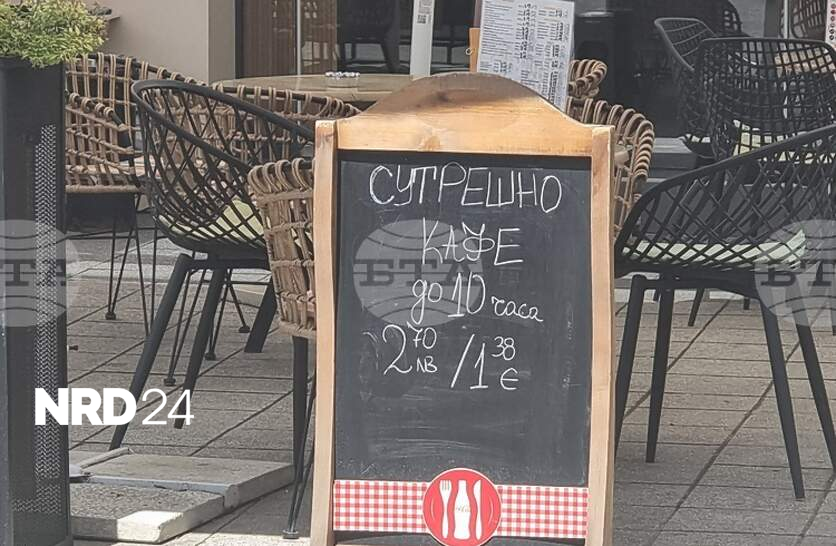 СУТРЕШНО
КАФЕ
до 10 часа
2 70 лв / 1 38 €
БТА
БТА
БТА
NRD24